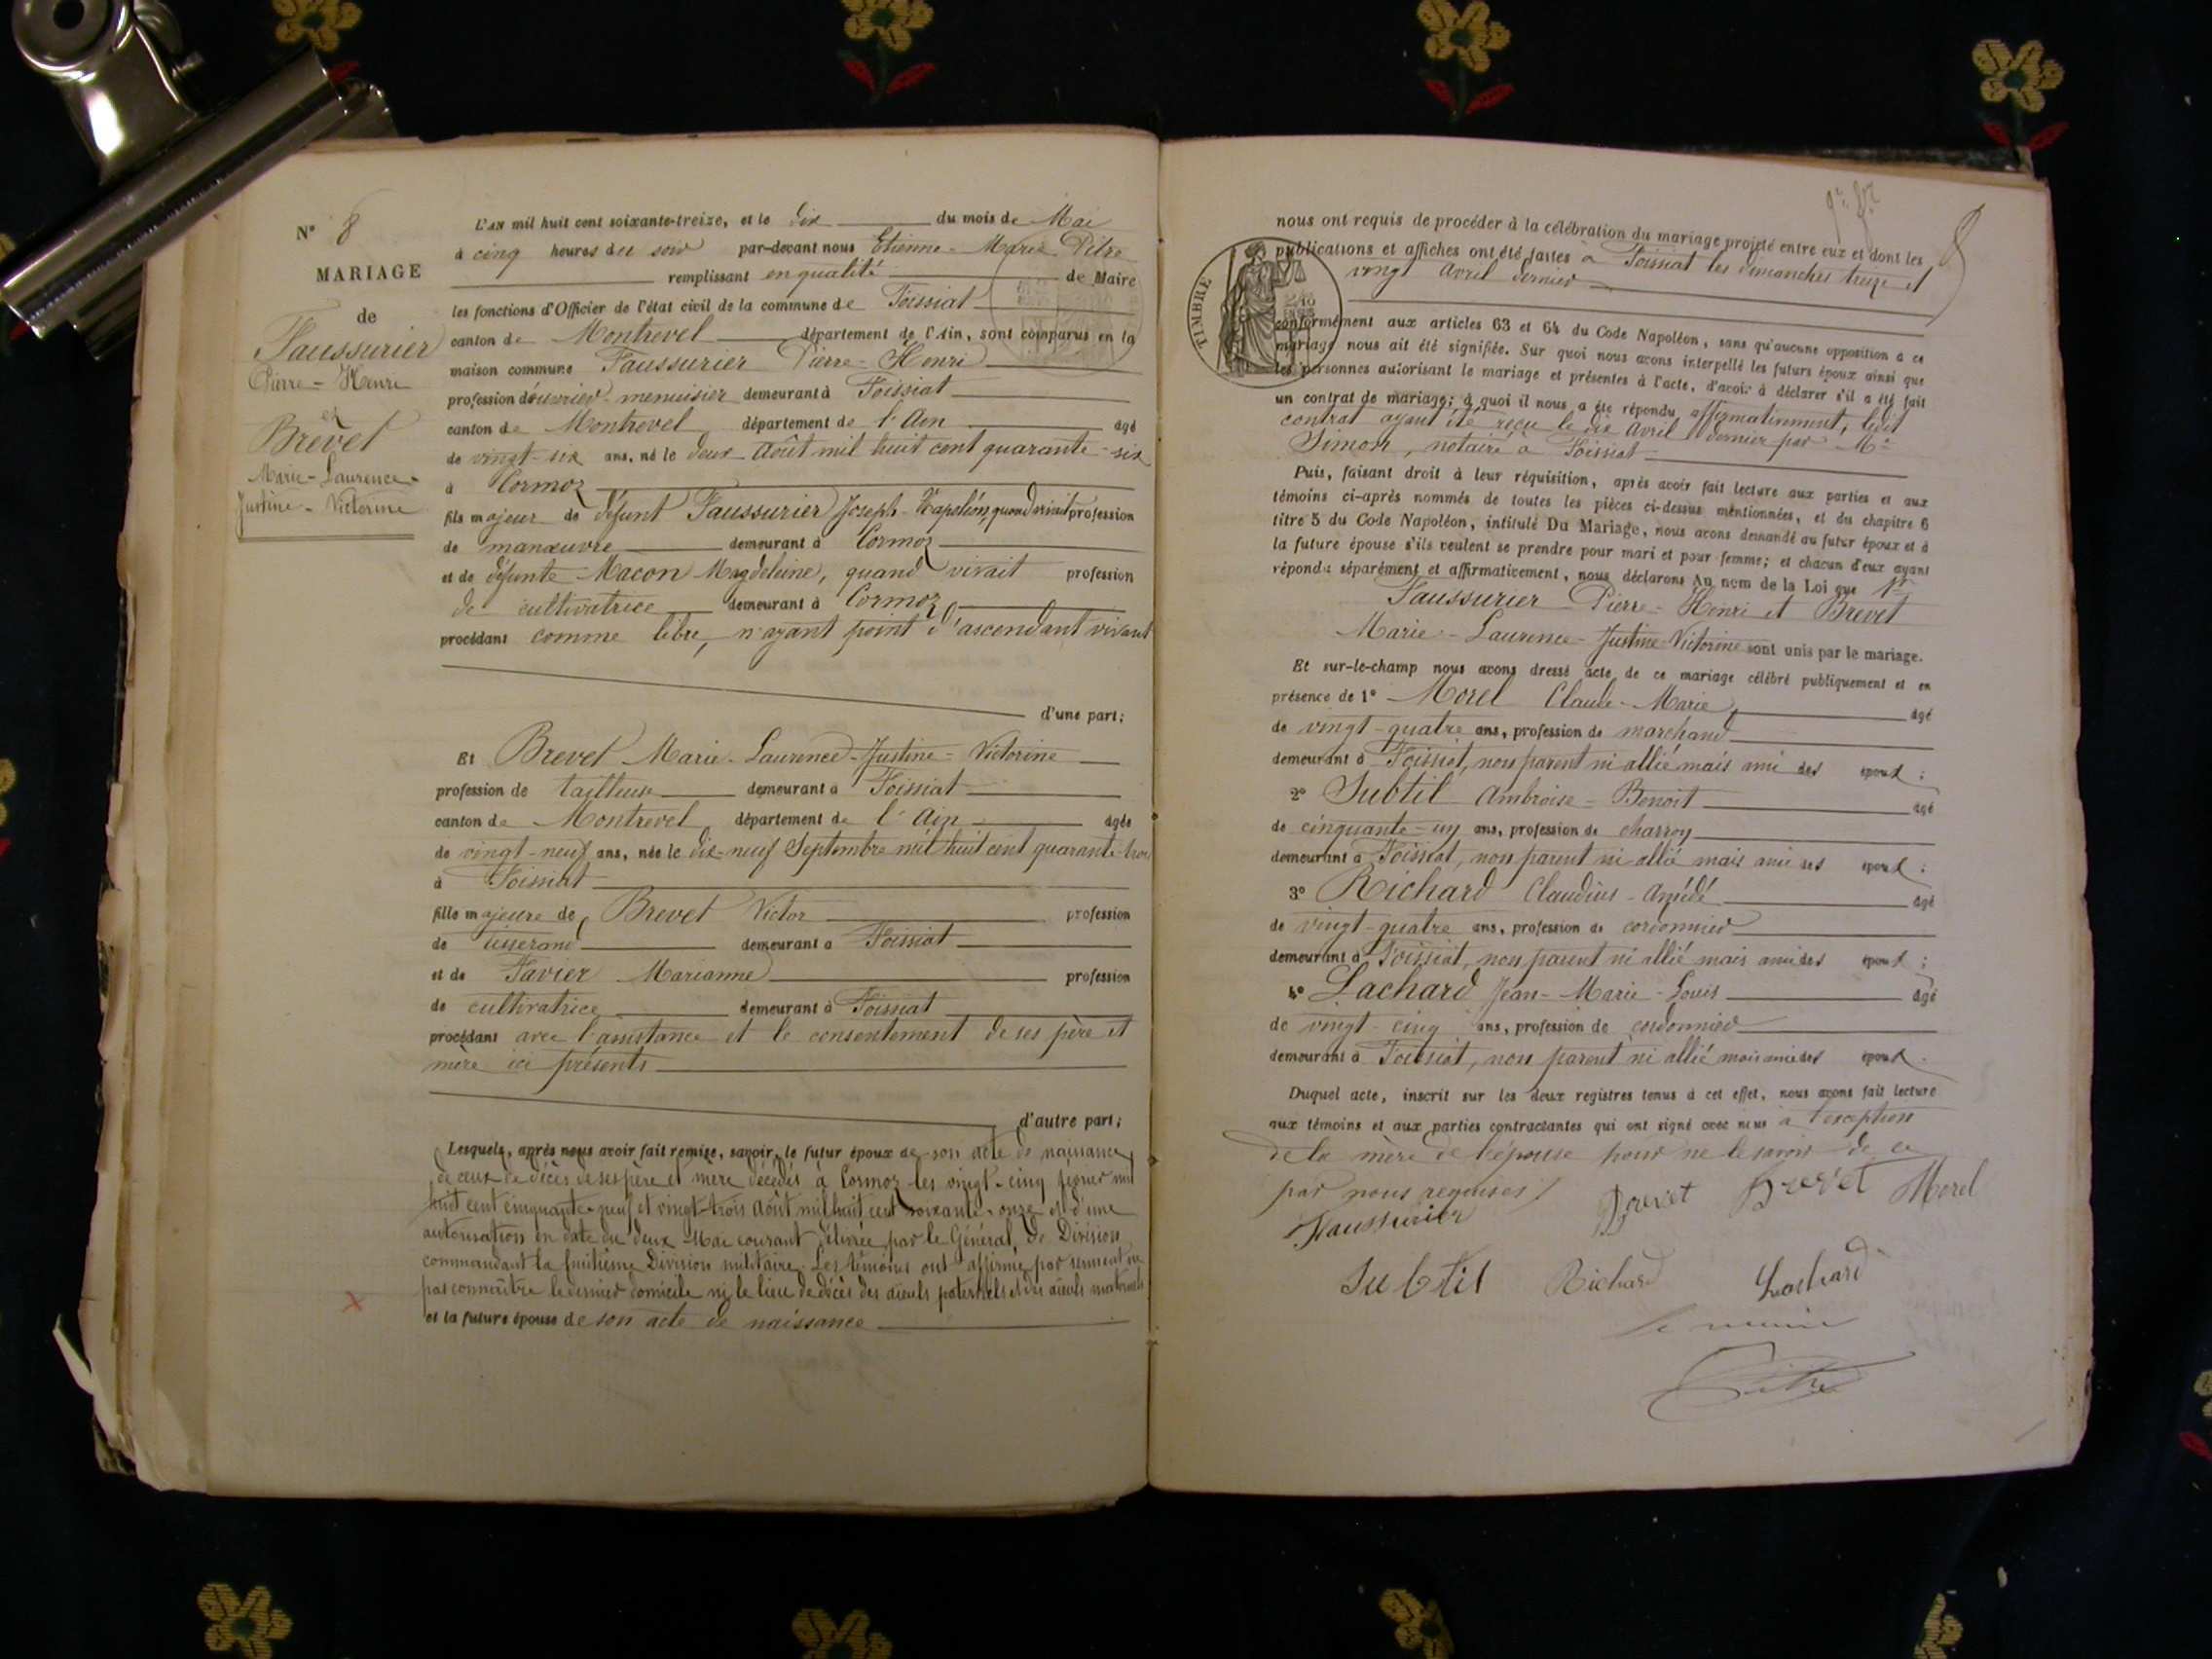 N° 8
MARIAGE
de
Faussurier
Pierre-Henri
et
Brevet
Marie-Laurence-
Justine-Victorine
L'AN mil huit cent soixante-treize, et le dix du mois de Mai
à cinq heures du soir par-devant nous Etienne-Marie Pitre
remplissant en qualité de Maire
les fonctions d'Officier de l'état civil de la commune de Foissiat
canton de Montrevel département de l'Ain, sont comparus en la
maison commune Faussurier Pierre-Henri
profession d'ouvrier-menuisier demeurant à Foissiat
canton de Montrevel département de l'Ain âgé
de vingt-six ans, né le deux Août mil huit cent quarante-six
à Cormoz
fils majeur de défunt Faussurier Joseph-Napoléon, quand vivait profession
de manœuvre demeurant à Cormoz
et de défunte Macon Magdeleine, quand vivait profession
de cultivatrice demeurant à Cormoz
procédant comme libre, n'ayant point d'ascendant vivant
d'une part;
Et Brevet Marie-Laurence-Justine-Victorine
profession de tailleuse demeurant à Foissiat
canton de Montrevel département de l'Ain âgée
de vingt-neuf ans, née le dix-neuf Septembre mil huit cent quarante-trois
à Foissiat
fille majeure de Brevet Victor profession
de tisserand demeurant à Foissiat
et de Favier Marianne profession
de cultivatrice demeurant à Foissiat
procédant avec l'assistance et le consentement de ses père et
mère ici présents
d'autre part;
Lesquels, après nous avoir fait remise, savoir, le futur époux de son acte de naissance
de ceux de décès de ses père et mère décédés à Cormoz les vingt-cinq février mil
huit cent cinquante-neuf et vingt-trois Août mil huit cent soixante-onze et d'une
autorisation en date du deux Mai courant délivrée par le Général de Division
commandant la huitième Division militaire. Les témoins ont affirmé par serment ne
pas connaître le dernier domicile ni le lieu de décès des aïeuls paternels et des aïeuls maternels
et la future épouse de son acte de naissance
8
nous ont requis de procéder à la célébration du mariage projeté entre eux et dont les
publications et affiches ont été faites à Foissiat les dimanches treize et
vingt Avril dernier
TIMBRE
conformément aux articles 63 et 64 du Code Napoléon, sans qu'aucune opposition à ce
mariage nous ait été signifiée. Sur quoi nous avons interpellé les futurs époux ainsi que
les personnes autorisant le mariage et présentes à l'acte, d'avoir à déclarer s'il a été fait
un contrat de mariage; à quoi il nous a été répondu affirmativement, ledit
contrat ayant été reçu le dix Avril dernier par Me
Simon, notaire à Foissiat
Puis, faisant droit à leur réquisition, après avoir fait lecture aux parties et aux
témoins ci-après nommés de toutes les pièces ci-dessus mentionnées, et du chapitre 6
titre 5 du Code Napoléon, intitulé Du Mariage, nous avons demandé au futur époux et à
la future épouse s'ils veulent se prendre pour mari et pour femme; et chacun d'eux ayant
répondu séparément et affirmativement, nous déclarons Au nom de la Loi que
Faussurier Pierre-Henri et Brevet
Marie-Laurence-Justine-Victorine sont unis par le mariage.
Et sur-le-champ nous avons dressé acte de ce mariage célébré publiquement et en
présence de 1° Morel Claude-Marie âgé
de vingt-quatre ans, profession de marchand
demeurant à Foissiat, non parent ni allié mais ami des époux;
2° Subtil Ambroise-Benoit âgé
de cinquante-un ans, profession de charron
demeurant à Foissiat, non parent ni allié mais ami des époux;
3° Richard Claudius-Amédé âgé
de vingt-quatre ans, profession de cordonnier
demeurant à Foissiat, non parent ni allié mais ami des époux;
4° Lachard Jean-Marie-Louis âgé
de vingt-cinq ans, profession de cordonnier
demeurant à Foissiat, non parent ni allié mais ami des époux.
Duquel acte, inscrit sur les deux registres tenus à cet effet, nous avons fait lecture
aux témoins et aux parties contractantes qui ont signé avec nous à l'exception
de la mère de l'épouse pour ne le savoir de ce
par nous requises
Faussurier Brevet Brevet Morel
Subtil Richard Lachard
Le maire
Pitre